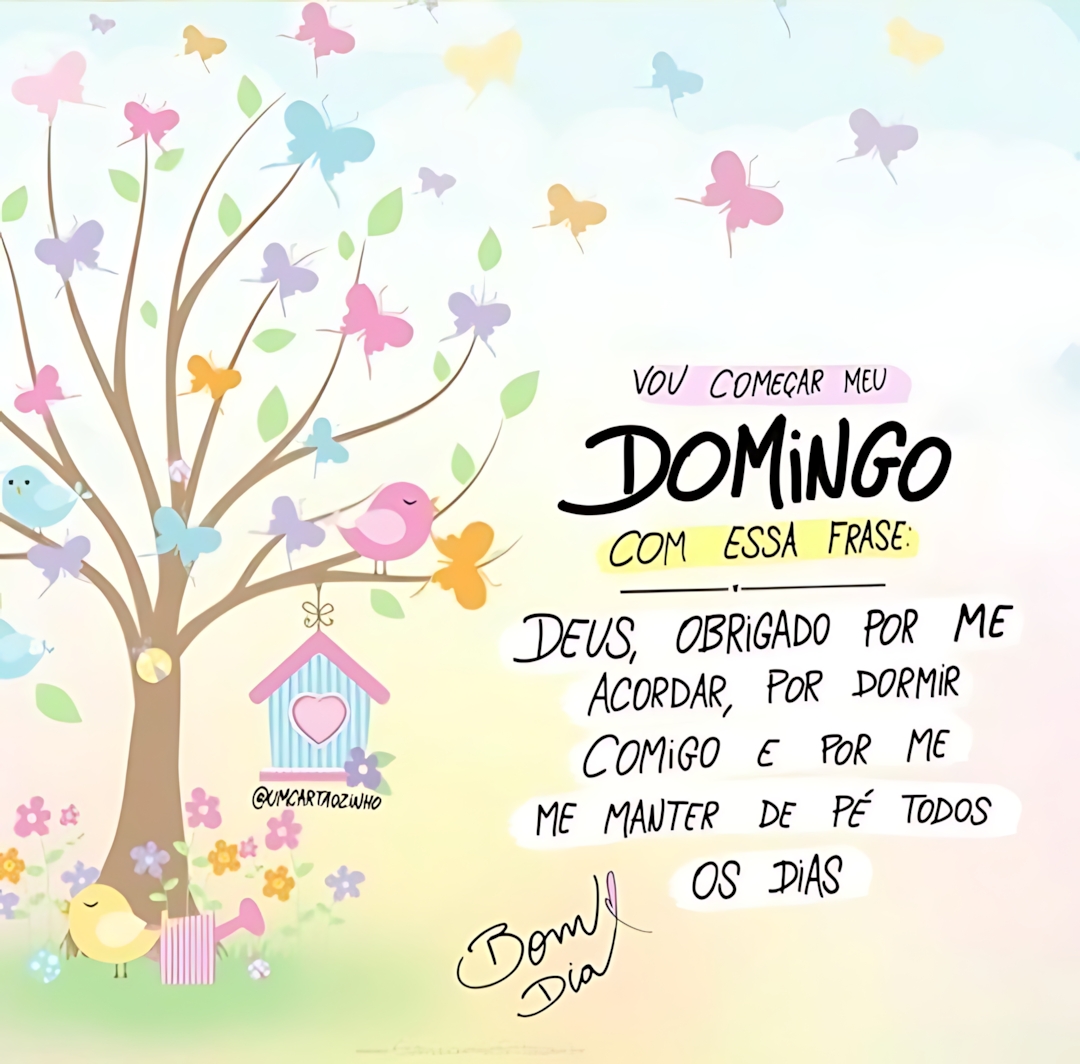 VOU COMEÇAR MEU
DOMINGO
COM ESSA FRASE:
DEUS, OBRIGADO POR ME
ACORDAR, POR DORMIR
COMIGO E POR ME
ME MANTER DE PÉ TODOS
OS DIAS
Bom
Dia
@UMCARTAOZINHO